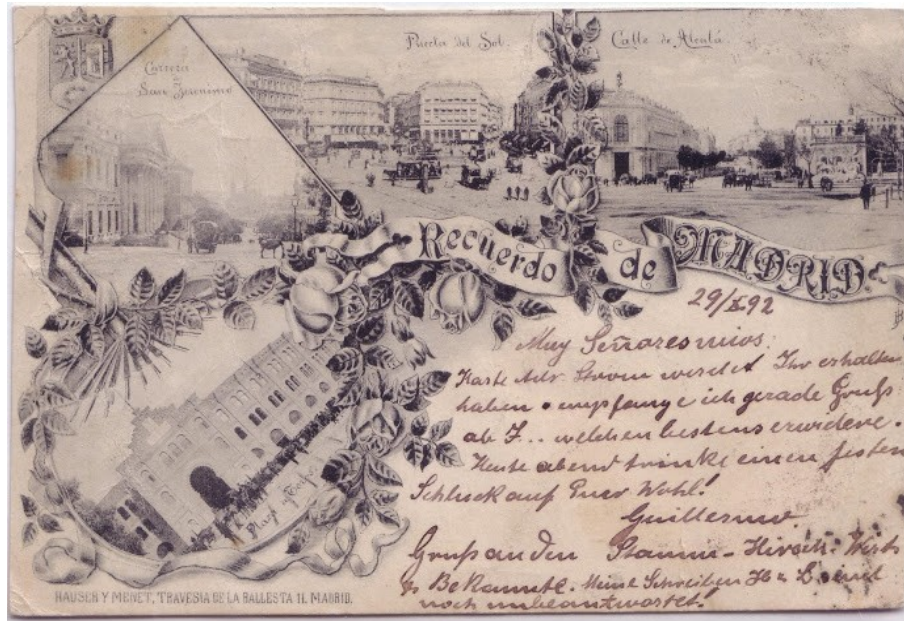 Carrera
de
San Jerónimo
Puerta del Sol.
Calle de Alcalá.
Recuerdo de MADRID
29/X 92
Muy Señores mios.
Karte Adr. werdet Ihr erhalten
haben empfange ich gerade Gruß
ab welchen bestens erwidere.
Heute abend trinke einen festen
Schluck auf Euer Wohl!
Guillermo.
Gruß an den Stamm-Hirsch-Wirth
& Bekannte. Meine Schreiben sind
noch unbeantwortet!
Plaza de Toros
HAUSER Y MENET, TRAVESIA DE LA BALLESTA 11. MADRID.